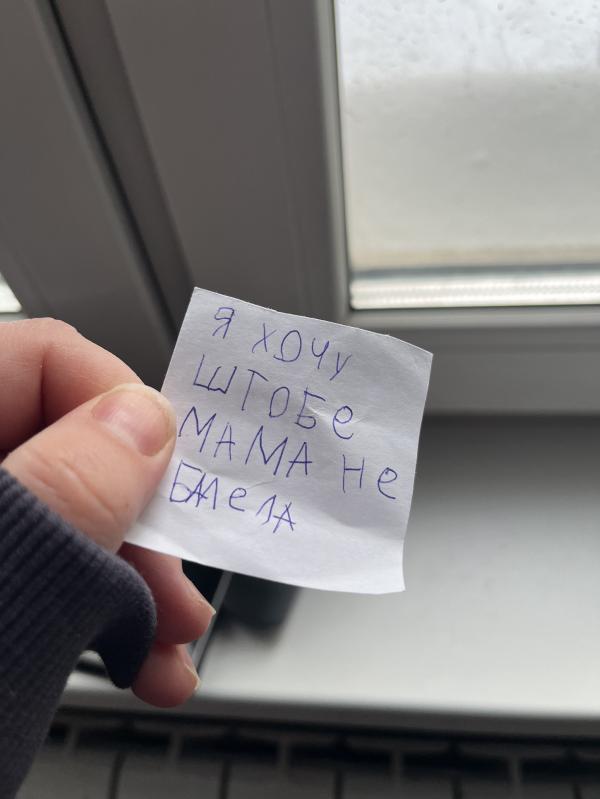 Я ХОЧУ
ШТОБЕ
МАМА НЕ
БАЛЕЛА